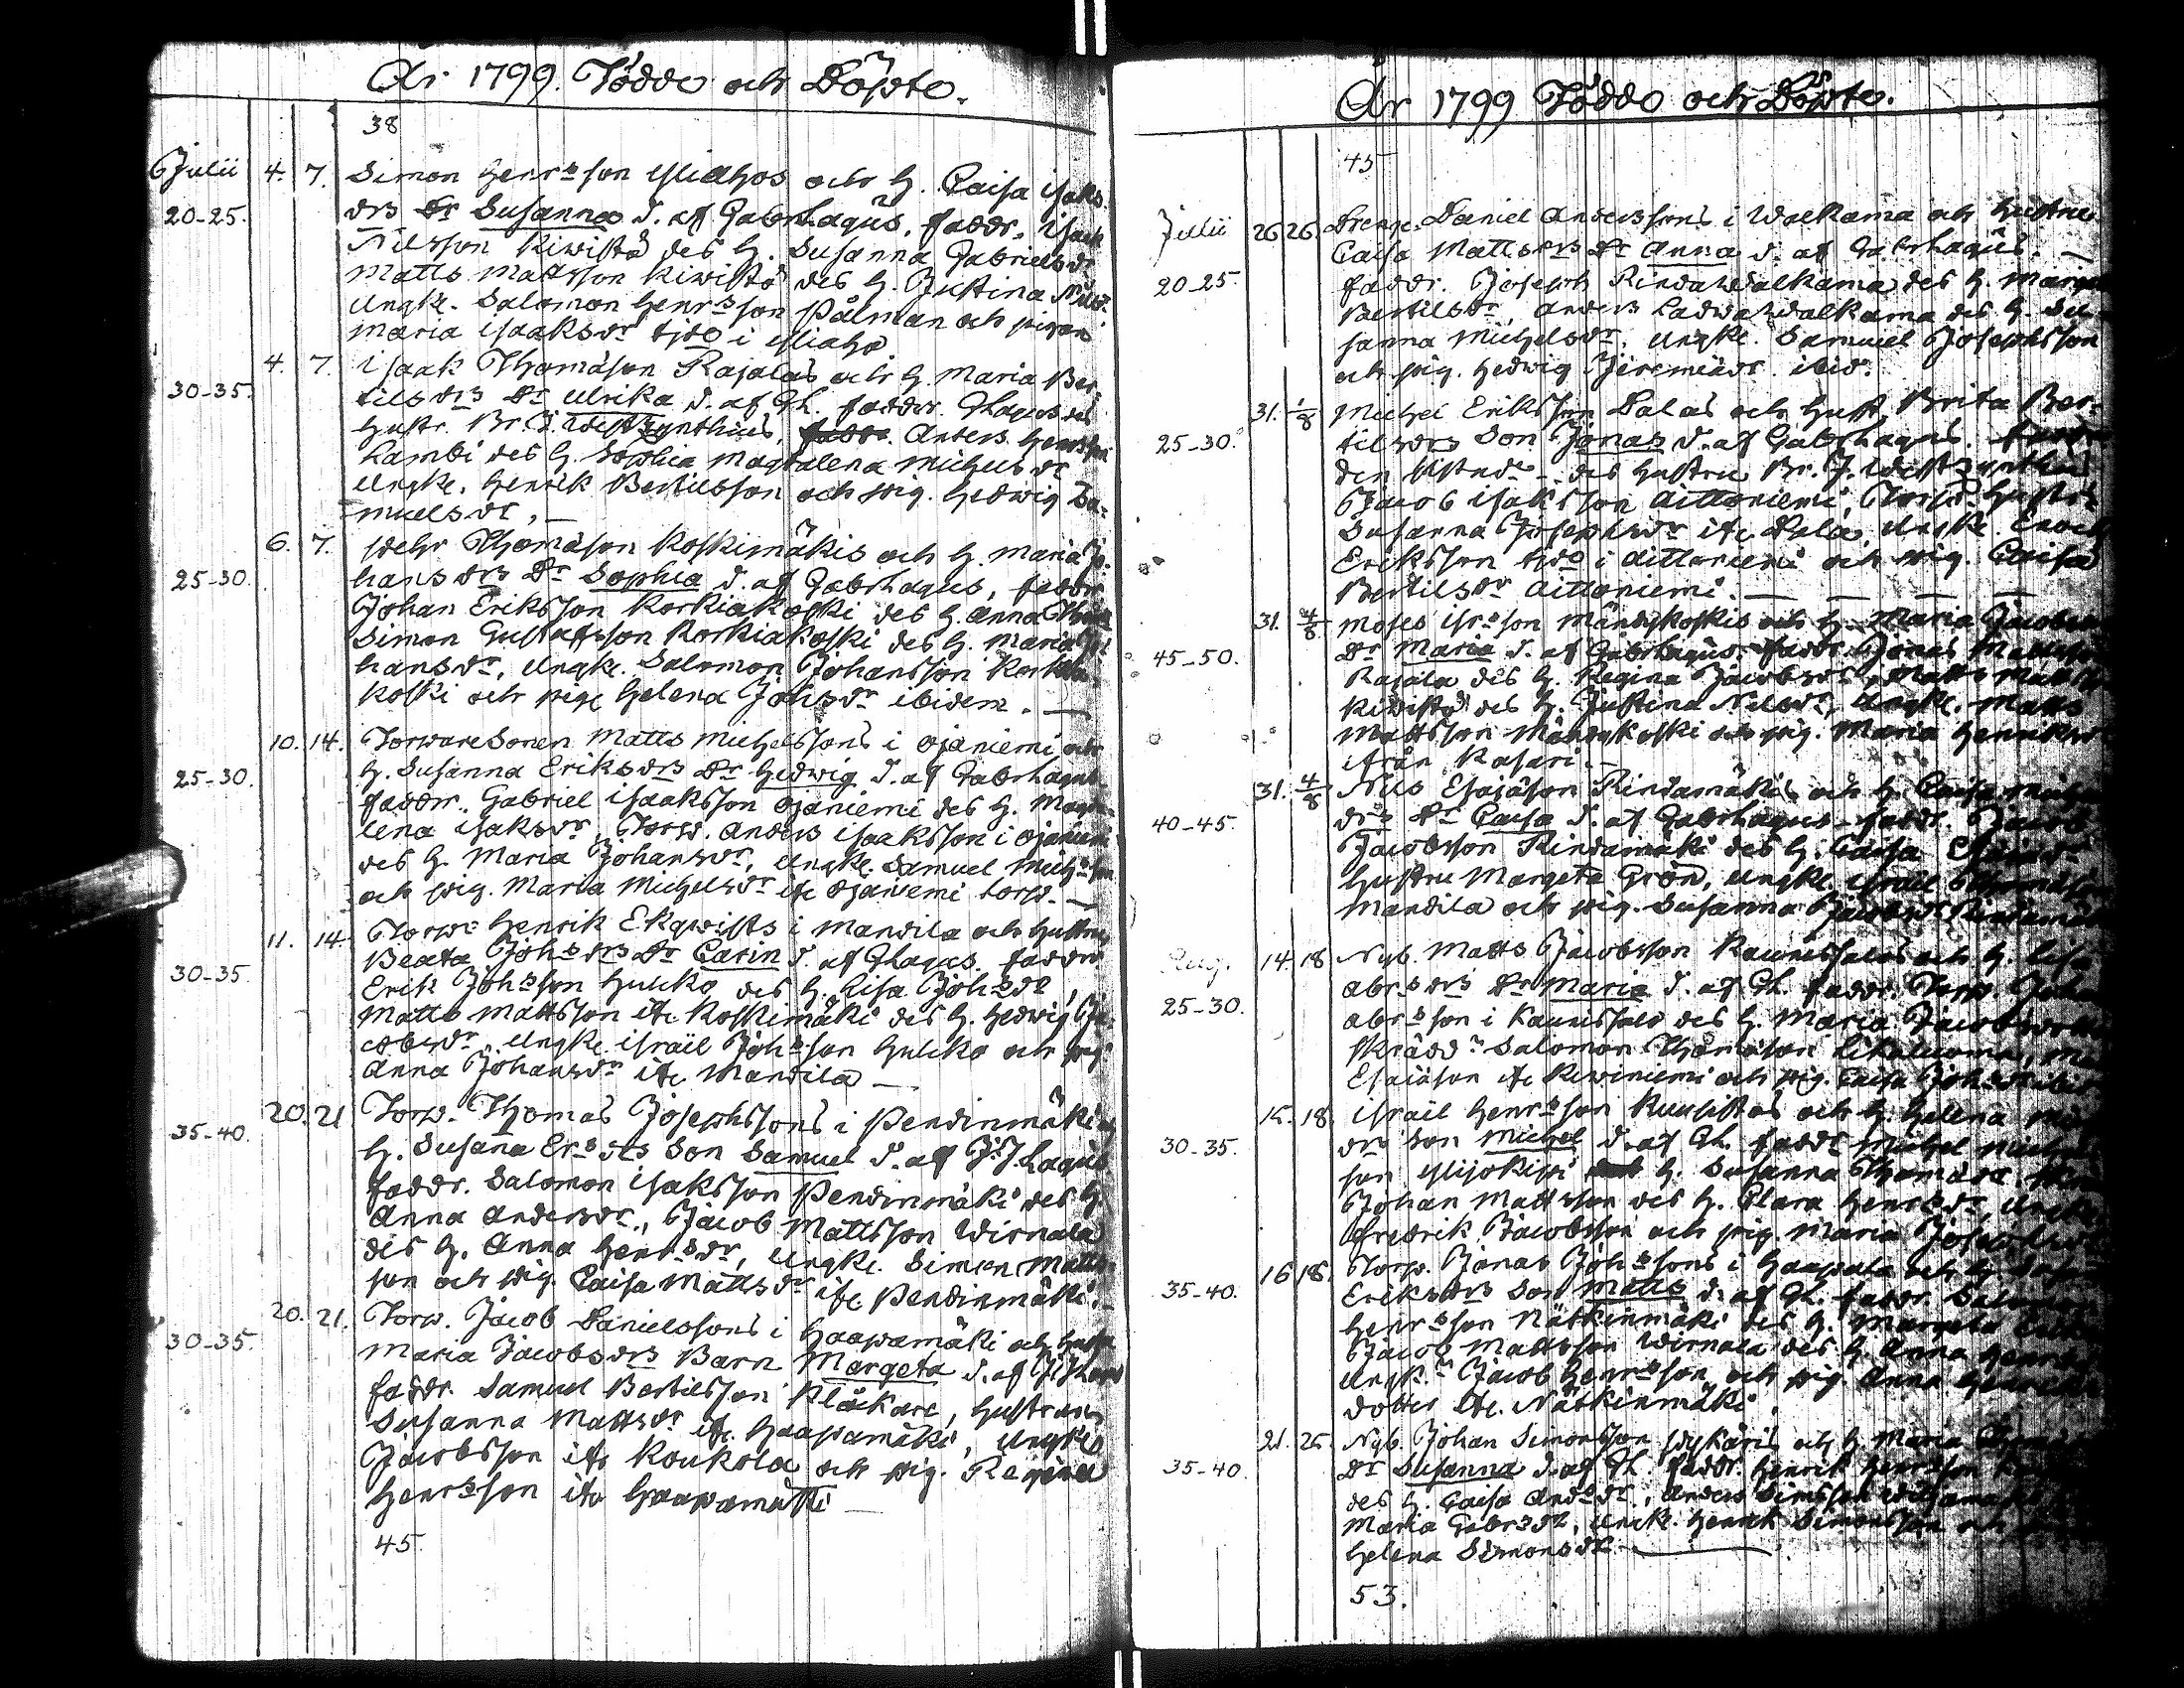 År 1799. Födde och Döpte.
38
Julii 4. 7. Simon Henrsson Yliahos och H. Caisa Isaks
20-25. drs Dr Susanna d. af Gabr Lagus. faddr. Isaak
Nilsson Kiwistö des H. Susanna Gabrielsdr
Matts Mattsson Kiwistö des H. Justina Nilsdr
Ungk. Salomon Henrsson Pålman och pigan
Maria Isaaksdr tjdo i Yliaho
4. 7. Isaak Thomason Rajalas och H. Maria Ber-
30-35. tilsdrs Dr Ulrika d. af Gh. faddr. GLagus des
Hustr. Br. J. Westzynthius, Anders Henrsson
Lambi des H. Sophia Magdalena Michelsdr
Ungk. Henrik Bertilsson och pig. Hedwig Sa-
muelsdr.
6. 7. Thomason Koskimäkis och H. Maria Jo-
25-30. hansdrs Dr Sophia d. af Gabr Lagus, faddr
Johan Eriksson Korkiakoski des H. Anna
Simon Gustafsson Korkiakoski des H. Maria Jo-
hansdr, Ungk. Salomon Johansson Korkia-
koski och piga Helena Johsdr ibidem.
10. 14. Torparesonen Matts Michelssons i Ojaniemi och
25-30. H. Susanna Eriksdrs Dr Hedwig d. af Gabr Lagus
faddr. Gabriel Isaaksson Ojaniemi des H. Magda-
lena Isaksdr, Torp. Anders Isaaksson i Ojaniemi
des H. Maria Johansdr, Ungk. Samuel Michsson
och pig. Maria Michelsdr ifr. Ojaniemi torp.
11. 14. Torp. Henrik Ekqwists i Mandila och Hustru
30-35. Beata Johsdrs Dr Carin d. af GLagus. faddr
Erik Johsson Hulcko des H. Lisa Johsdr,
Matts Mattsson ifr. Koskimäki des H. Hedwig Ja-
cobsdr Ungk. Israël Johsson Hulcko och pig
Anna Johansdr ifr. Mandila
20. 21 Torp. Thomas Josephssons i Pendinmäki och
35-40. H. Susanna Ersdrs Son Samuel d. af J.J. Lagus
faddr. Salomon Isaksson Pendinmäki des H
Anna Andersdr., Jacob Mattsson Wirnala
des H. Anna Henrsdr, Ungk. Simon Matts-
son och pig. Caisa Mattsdr ifr. Pendinmäki.
20. 21. Torp. Jacob Danielssons i Haapamäki och Hustr
30-35. Maria Jacobsdrs Barn Margeta d. af
faddr. Samuel Bertilsson Klåckare, Hustrun
Susanna Mattsdr ifr. Haapamäki, Ungk
Jacobsson ifr Koukola och pig. Regina
Henrsson ifr Haapamäki
45.
År 1799 Födde och Döpte.
45
Julii 26 26. Drenge. Daniel Anderssons i Walkama och Hustru
Caisa Mattsdrs Dr Anna d. af Gabr Lagus.
20-25. faddr. Joseph Rinda Walkama des H. Marga
Bertilsdr, Anders Ladwa Walkama des H. Su-
sanna Michelsdr. Ungk. Samuel Josephsson
och pig. Hedwig Jeremiædr. ibid.
31. 1/8 Michel Eriksson Lalas och Hust. Brita Ber-
25-30. tilsdrs Son Jonas d. af Gabr Lagus.
des Hustru Br. J. Westzynthius
Jacob Isaksson Aittoniemi, Torp. Hustr.
Susanna Josephsdr ifr. Lala. Ungk. Enoch
Eriksson tjdo i Aittoniemi och pig. Caisa
Bertilsdr Aittoniemi.
31. 4/8 Moses Isrsson Mändykoskis och H. Maria Jacobs
45-50. Dr Maria d. af Gabr Lagus. faddr. Jonas Mattsson
Rajala des H. Regina Jacobsdr, Matts Matts
Kiwistö des H. Justina Nilsdr, Ungk. Matts
Mattsson Mändykoski och pig. Maria Henriksdr
ifrån Kasari.
31. 4/8 Nils Esaiæson Rindamäkis och H. Caisa
40-45. drs Dr Caisa d. af Gabr Lagus - faddr. Jacob
Jacobsson Rindamäki des H. Caisa
Hustru Margeta Grön, Ungk. Israel Thomason
Mandila och pig. Susanna Jacobsdr
Aug. 14. 18 Nyb. Matts Jacobsson Kaunissalos och H. Lisa
Abrsdrs Dr Maria d. af Gh. faddr. Torp Johan
25-30. Abrsson i Kaunissalo des H. Maria Jacobsdr
skrädd. Salomon Thomason Likaluoma,
Esaiæson ifr Kewiniemi och pig. Caisa Johsdr
15. 18. Israël Henrsson Kuusistos och H. Helena
30-35. drs Son Michel d. af Gh. faddr Michel Michels
son Ylijokipi H. Susanna Thomædr
Johan Mattsson des H. Clara Henrsdr, Ungk
Fredrik Jacobsson och pig. Maria Josephsdr
16 18. Torp. Jonas Johssons i Haapala och H.
35-40. Eriksdrs Son Matts d. af Gh. faddr. Salomon
Henrsson Nätkinmäki des H. Margeta
Jacob Mattsson Wirnala des H. Anna Henrs
Ungk. Jacob Henrsson och pig. Anna Henriks
dotter ifr. Nätkinmäki.
21. 25. Nyb. Johan Simonsson och H. Maria
35-40. Dr Susanna d. af Gh. faddr. Henrik Henrsson
des H. Caisa Andsdr, Anders Simsson
Maria Gabrsdr, Ungk. Henrik Simonsson och
Helena Simonsdr.
53.